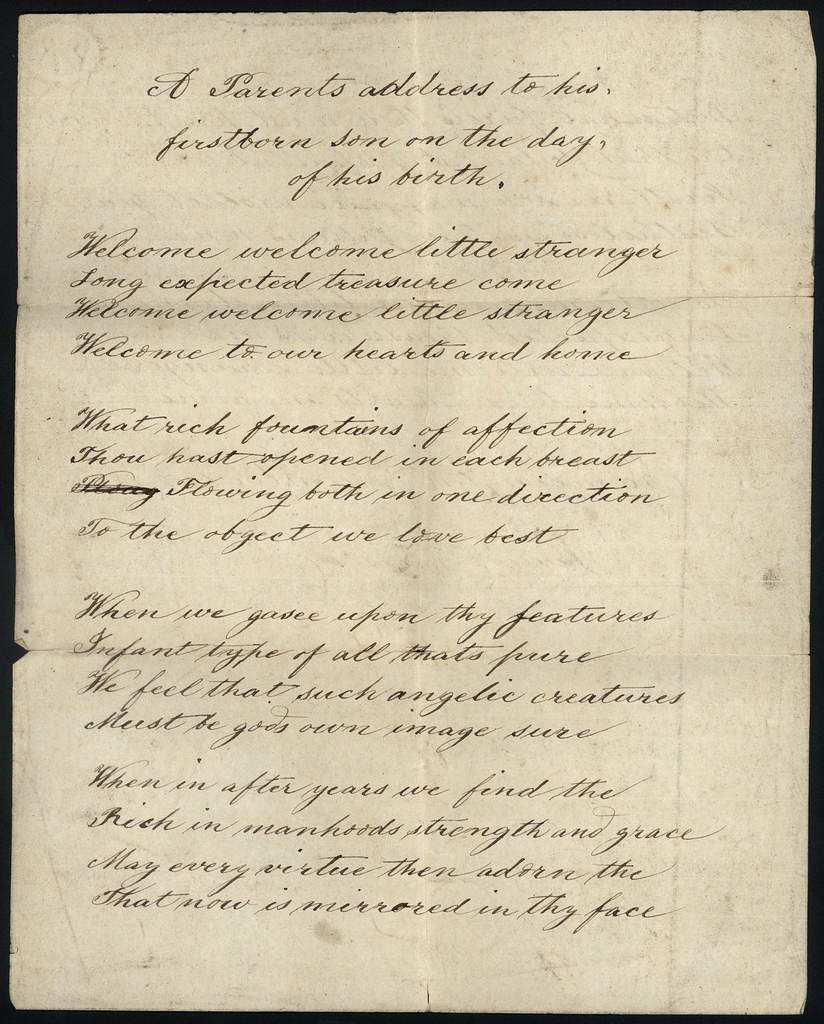 A Parents address to his,
firstborn son on the day,
of his birth.
Welcome welcome little stranger
Long expected treasure come
Welcome welcome little stranger
Welcome to our hearts and home
What rich fountains of affection
Thou hast opened in each breast
Flowing both in one direction
To the object we love best
When we gasee upon thy features
Infant type of all thats pure
We feel that such angelic creatures
Must be gods own image sure
When in after years we find the
Rich in manhoods strength and grace
May every virtue then adorn the
That now is mirrored in thy face